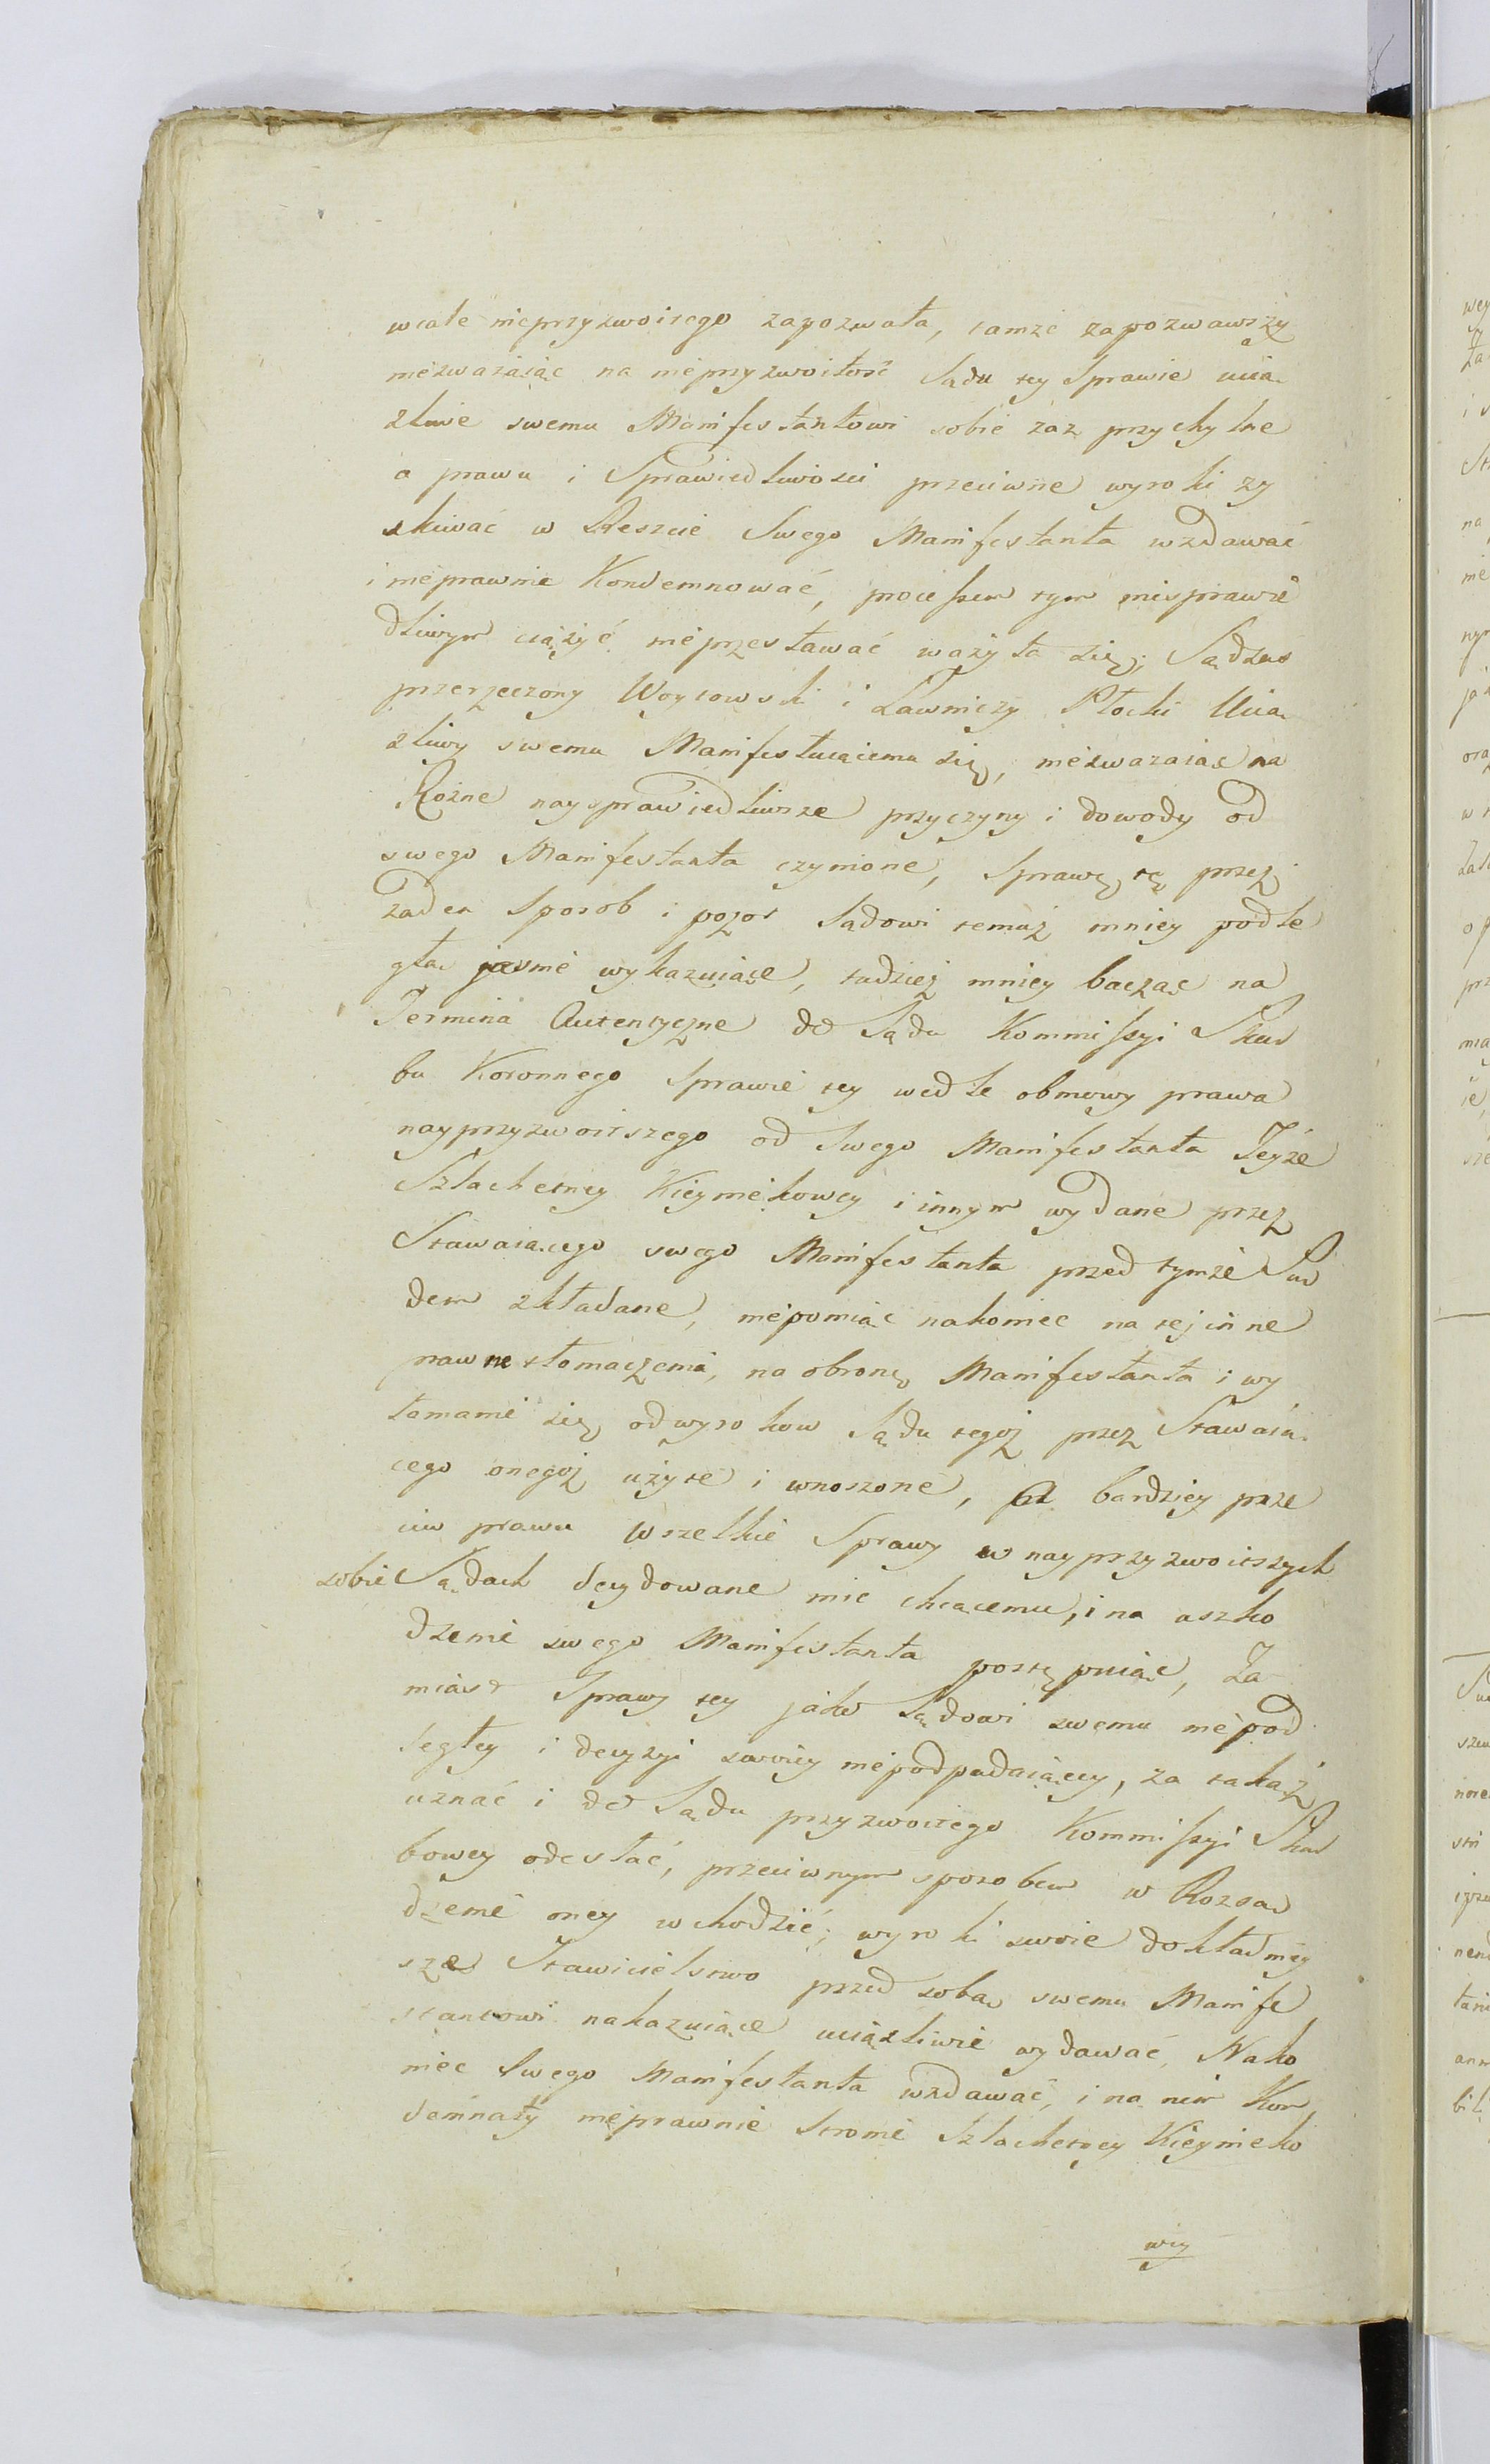 wcale nieprzyzwoitego zapozwała, tamże zapozwawszy
niezważaiąc na nieprzyzwoitość Sądu tey Sprawie ucią
żliwe swemu Manifestantowi sobie zaz przychylne
a prawu i Sprawiedliwości przeciwne wyroki zy
skiwać w Reszcie Swego Manifestanta wzdawać
i nieprawnie Kondemnować, processem tym niesprawie
dliwym ciążyć nieprzestawać ważyła się; Sądzas
przerzeczony Woytowski i Ławniczy Płocki Ucią
żliwy swemu Manifestuiącemu się, niezwazaiąc na
Rożne naysprawiedliwsze przyczyny i dowody od
swego Manifestanta czynione, Sprawę tę przez
żaden Sposob i pozor Sądowi temuż mniey podle
głą jasnie wykazuiące, tudzież mniey bacząc na
Termina Autentyczne do Sądu Kommissyi Skar
bu Koronnego Sprawie tey wedle obmowy prawa
nayprzyzwoitszego od Swego Manifestanta Teyże
Szlachetney Kieynikowey i innym wydane przez
Stawaiącego swego Manifestanta przed tymże Są
dem składane, niepomiąc nakoniec na tej inne
prawne tłomaczenia, na obronę Manifestanta i wy
łamanie się od wyrokow Sądu tegoż przez Stawaią
cego onegoż użyte i wnoszone, a bardziey prze
ciw prawu wszelkie Sprawy w nayprzyzwoitszych
sobie Sądach decydowane mie chcącemu, i na uszko
dzenie swego Manifestanta postępuiąc, Za
miast Sprawy tey jako Sądowi swemu niepod
ległey i decyzyi swoiey niepodpadaiącey, za takąż
uznać i do Sądu przyzwoitego Kommissyi Skar
bowey odesłać, przeciwnym sposobem w Rozsą
dzenie oney wchodzić; wyroki swoie dokładniey
sze Stawicielstwo przed sobą swemu Manife
stantowi nakazuiące uciążliwie wydawać, Nako
niec Swego Manifestanta wzdawać, i na nim Kon
demnaty nieprawnie Stronie Szlachetney Kieyniko
wey